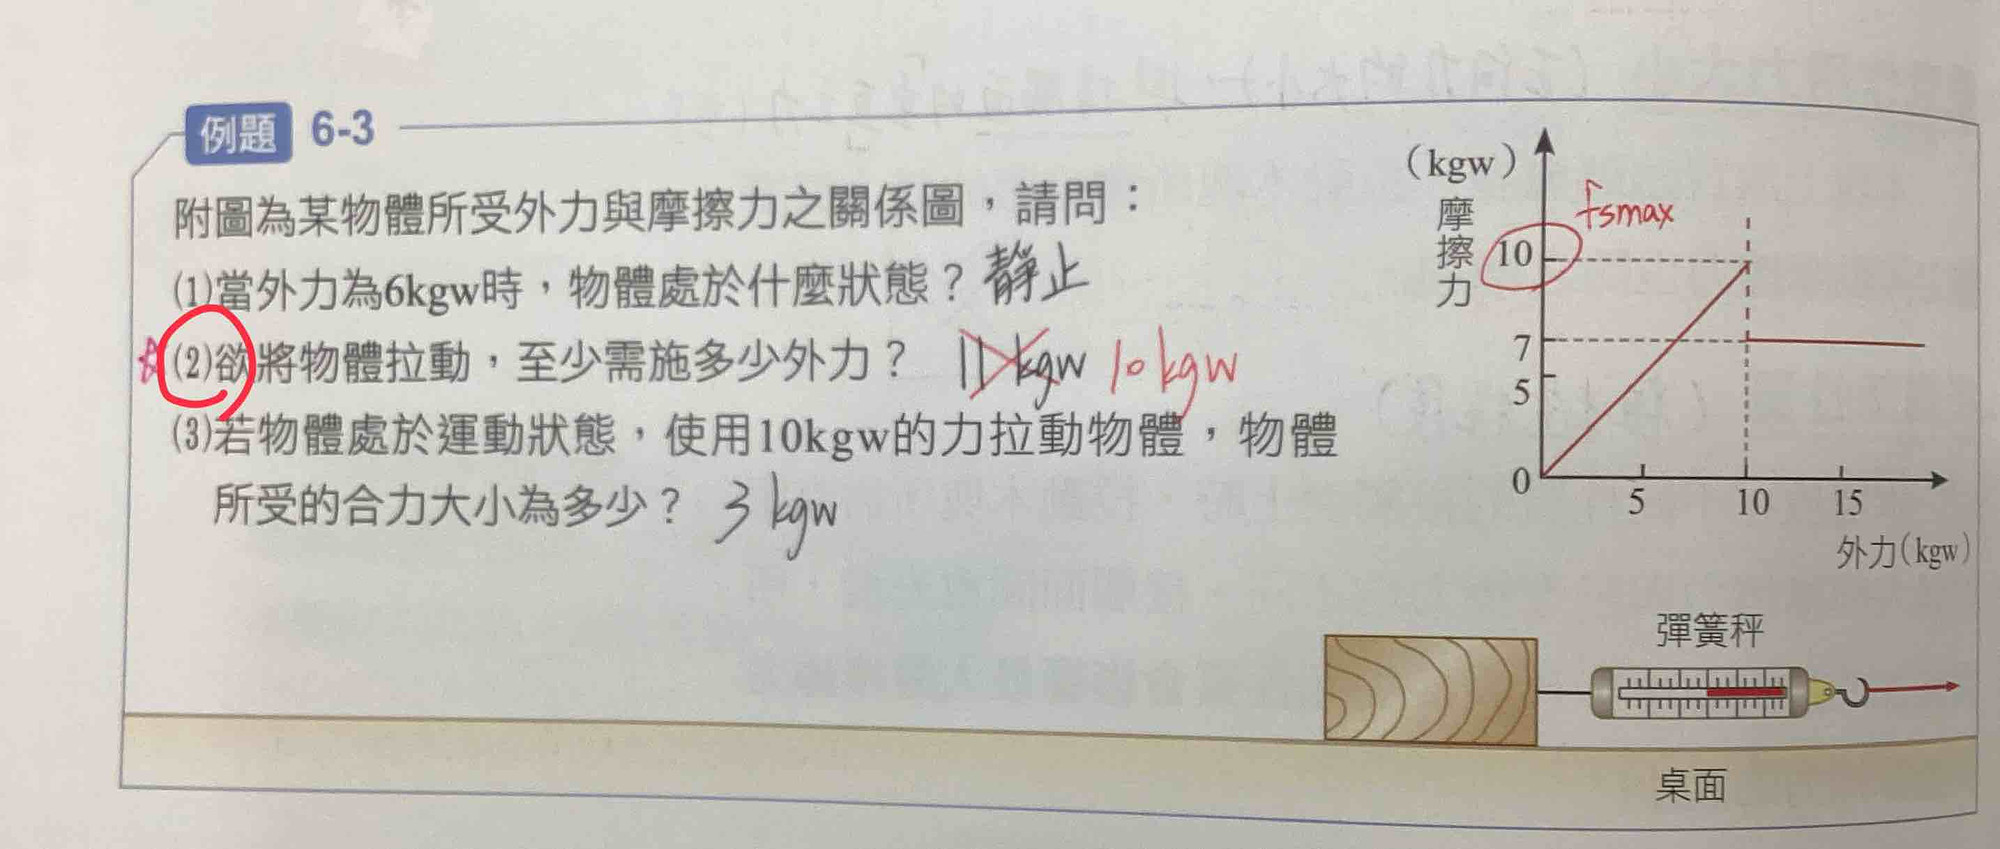 例題 6-3
附圖為某物體所受外力與摩擦力之關係圖，請問：
(1)當外力為6kgw時，物體處於什麼狀態？靜止
(2)欲將物體拉動，至少需施多少外力？ 11 kgw 10 kgw
(3)若物體處於運動狀態，使用10kgw的力拉動物體，物體
所受的合力大小為多少？ 3 kgw
(kgw)
摩擦力
fsmax
10
7
5
0
5 10 15
外力(kgw)
彈簧秤
桌面